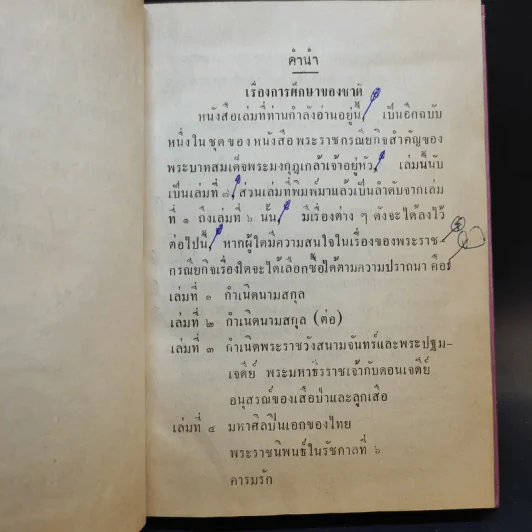 คำนำ
เรื่องการศึกษาของชาติ
หนังสือเล่มที่ท่านกำลังอ่านอยู่นี้ เป็นอีกฉบับ
หนึ่งในชุดของหนังสือพระราชกรณียกิจสำคัญของ
พระบาทสมเด็จพระมงกุฎเกล้าเจ้าอยู่หัว เล่มนี้นับ
เป็นเล่มที่ ๗ ส่วนเล่มที่พิมพ์มาแล้วเป็นลำดับจากเล่ม
ที่ ๑ ถึงเล่มที่ ๖ นั้น มีเรื่องต่าง ๆ ดังจะได้ลงไว้
ต่อไปนี้ หากผู้ใดมีความสนใจในเรื่องของพระราช
กรณียกิจเรื่องใดจะได้เลือกซื้อได้ตามความปรารถนา คือ
เล่มที่ ๑ กำเนิดนามสกุล
เล่มที่ ๒ กำเนิดนามสกุล (ต่อ)
เล่มที่ ๓ กำเนิดพระราชวังสนามจันทร์และพระปฐม-
เจดีย์ พระมหาธีรราชเจ้ากับดอนเจดีย์
อนุสรณ์ของเสือป่าและลูกเสือ
เล่มที่ ๔ มหาศิลปินเอกของไทย
พระราชนิพนธ์ในรัชกาลที่ ๖
คารมรัก